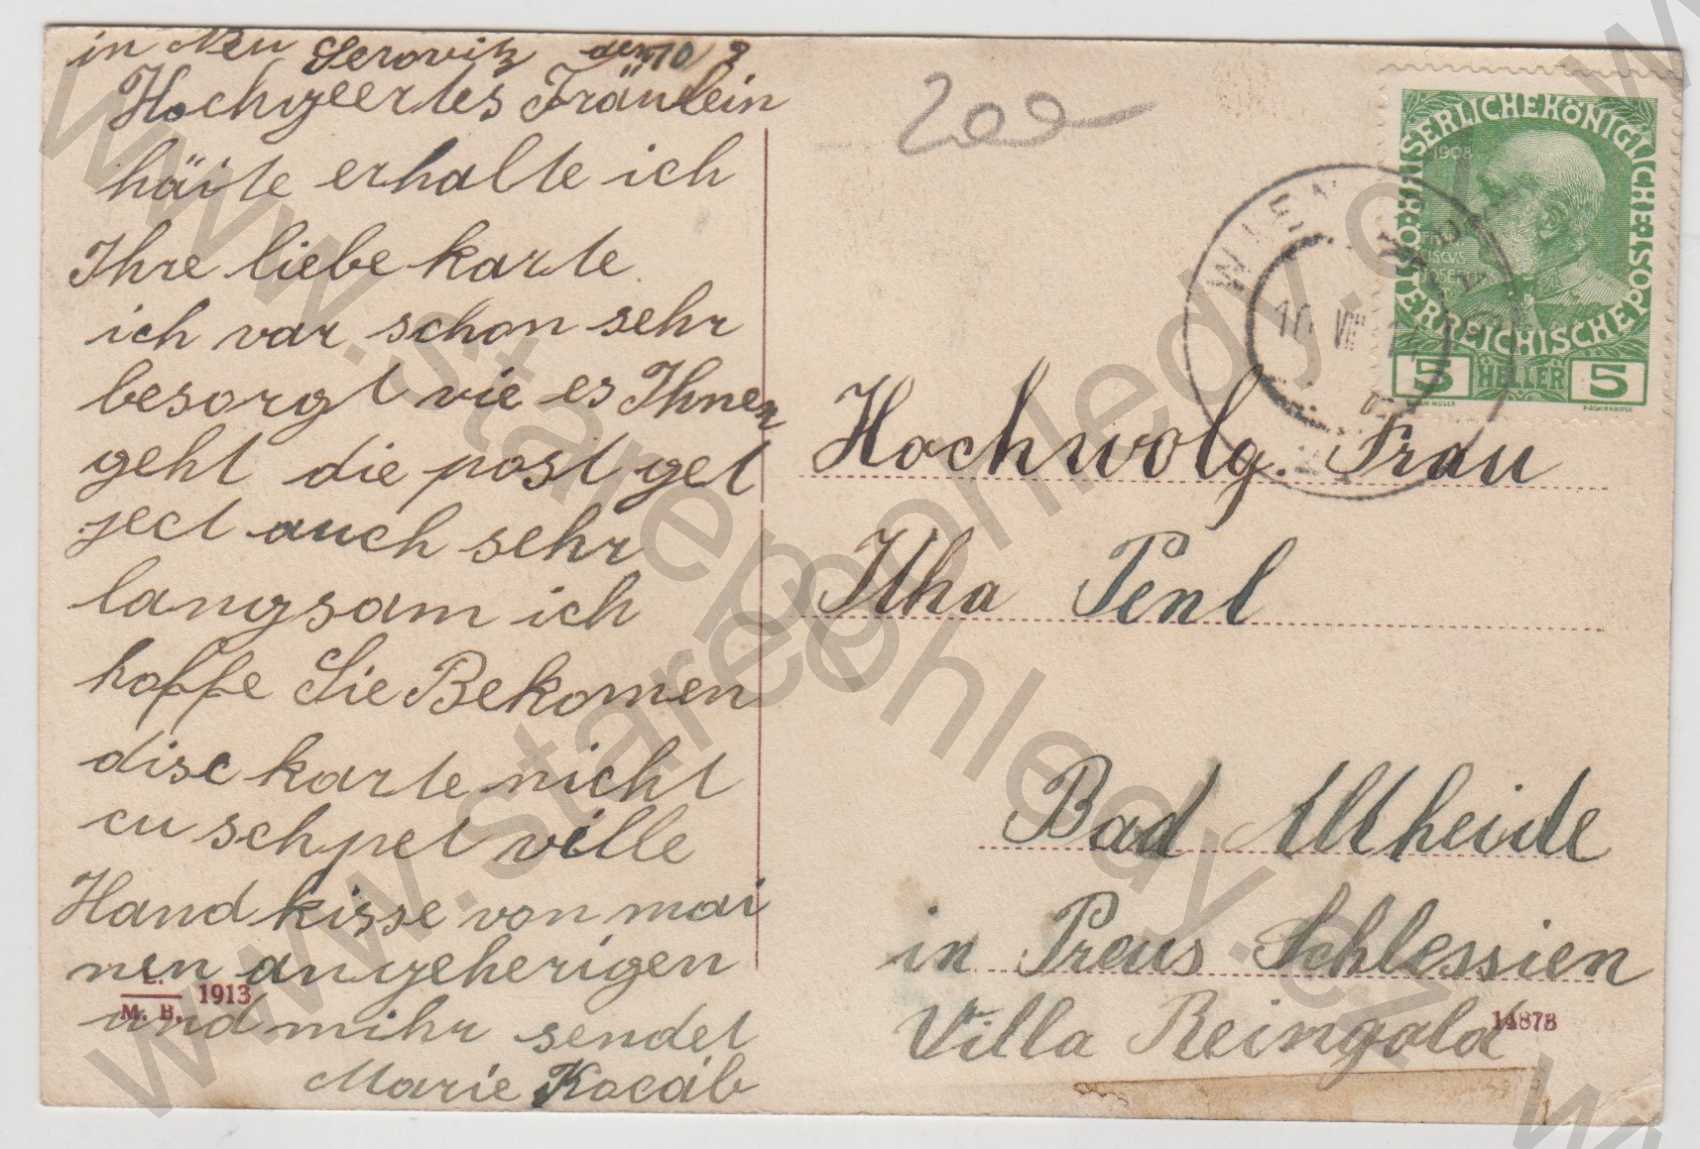 in Neu Serovitz den 10/8
Hochgeertes Fräulein
häite erhalte ich
Ihre liebe karte
ich var schon sehr
besorgt vie es Ihnen
geht die post get
ject auch sehr
langsam ich
hoffe Sie Bekomen
dise karte nicht
cu schpet ville
Hand kisse von mai
nen angeherigen
und mihr sendet
Marie Kocáb
L.
M. B. 1913
200
WIEN
10 VIII
KAISERLICHEKÖNIGLICHE
ÖSTERREICHISCHEPOST
1908
5 HELLER 5
Hochwolg. Frau
Ilha Penl
Bad Altheide
in Preus Schlessien
Villa Reingold
14878
www.starepohledy.cz
www.starepohledy.cz